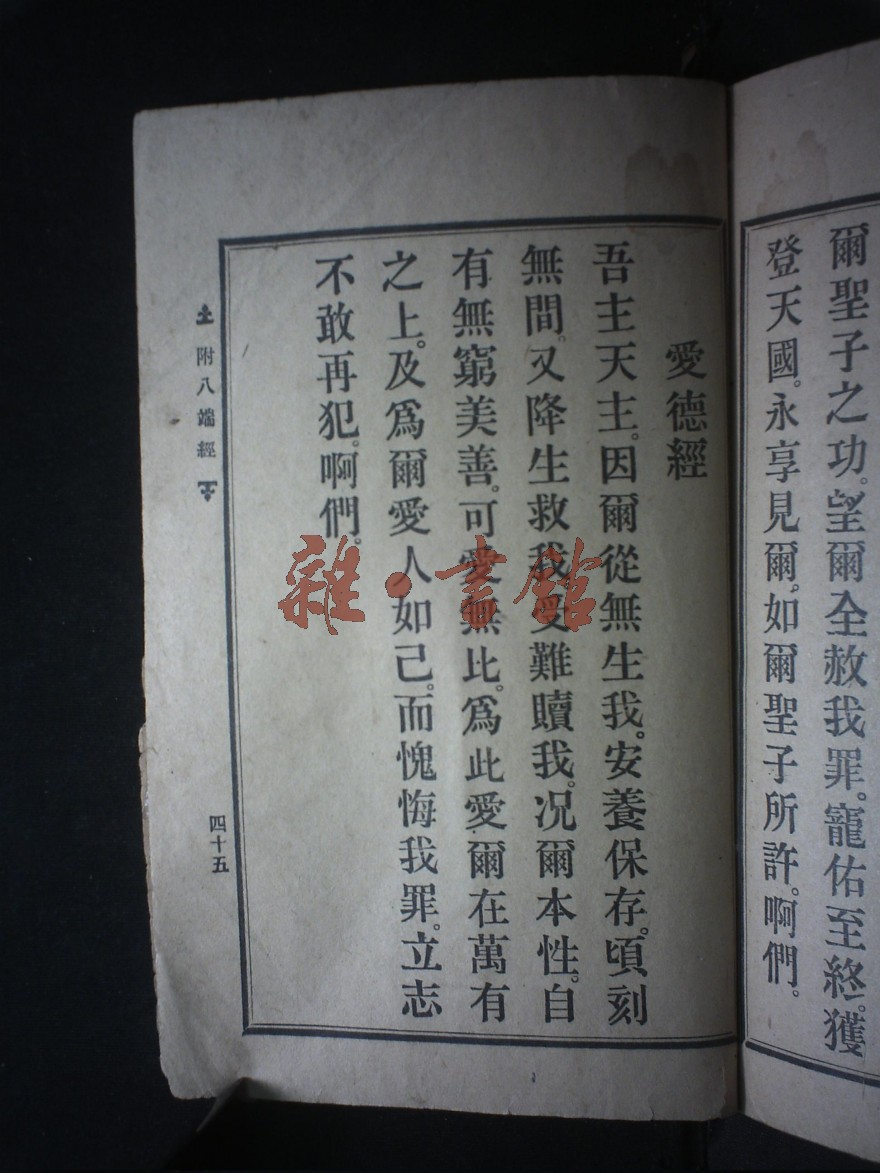 爾聖子之功。望爾全赦我罪。寵佑至終。獲
登天國。永享見爾。如爾聖子所許。啊們。
愛德經
吾主天主。因爾從無生我。安養保存。頃刻
無間。又降生救我。受難贖我。况爾本性。自
有無窮美善。可愛無比。爲此愛爾在萬有
之上。及爲爾愛人如己。而愧悔我罪。立志
不敢再犯。啊們。
附八端經
四十五
雜·書館